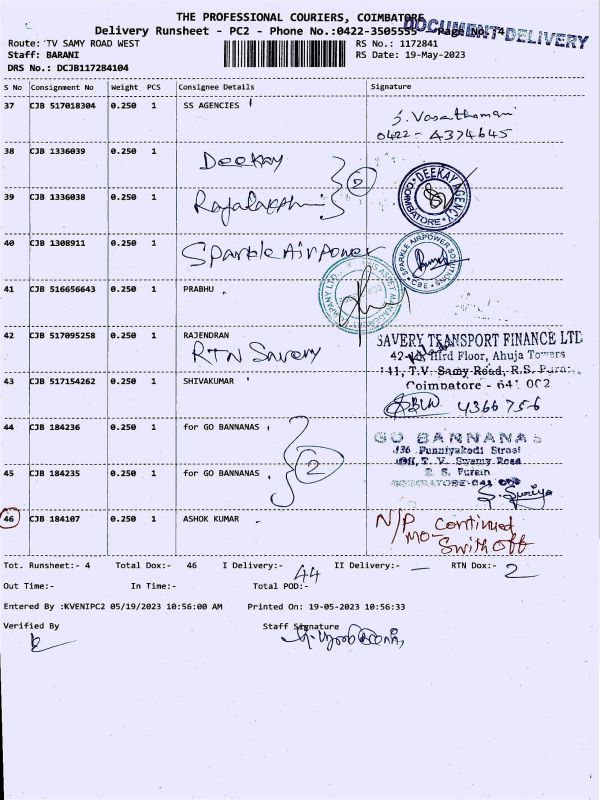 THE PROFESSIONAL COURIERS, COIMBATORE
DOCUMENT DELIVERY
Delivery Runsheet - PC2 - Phone No.:0422-3505555 Page No. 4
Route: TV SAMY ROAD WEST RS No.: 1172841
Staff: BARANI RS Date: 19-May-2023
DRS No.: DCJB117284104
S No Consignment No Weight PCS Consignee Details Signature
37 CJB 517018304 0.250 1 SS AGENCIES
S. Vasanthamani
0422 - 4374645
38 CJB 1336039 0.250 1 Deekay
2
DEEKAY AGENCY COIMBATORE
39 CJB 1336038 0.250 1 Rajalakshmi
40 CJB 1308911 0.250 1 Sparkle Airpower
SPARKLE AIRPOWER SOLUTIONS CBE
41 CJB 516656643 0.250 1 PRABHU
42 CJB 517095258 0.250 1 RAJENDRAN
RTN Savery
SAVERY TRANSPORT FINANCE LTD
IIIrd Floor, Ahuja Towers
T.V. Samy Road, R.S. Puram
Coimbatore - 641 002
43 CJB 517154262 0.250 1 SHIVAKUMAR
4366756
44 CJB 184236 0.250 1 for GO BANNANAS
2
GO BANNANAS
136 Punniyakodi Street
Off, T. V. Swamy Road
R. S. Puram
COIMBATORE-641 002
S. Suriya
45 CJB 184235 0.250 1 for GO BANNANAS
46 CJB 184107 0.250 1 ASHOK KUMAR
N/P
MO- continued
Swith off
Tot. Runsheet:- 4 Total Dox:- 46 I Delivery:- 44 II Delivery:- — RTN Dox:- 2
Out Time:- In Time:- Total POD:-
Entered By :KVENIPC2 05/19/2023 10:56:00 AM Printed On: 19-05-2023 10:56:33
Verified By Staff Signature